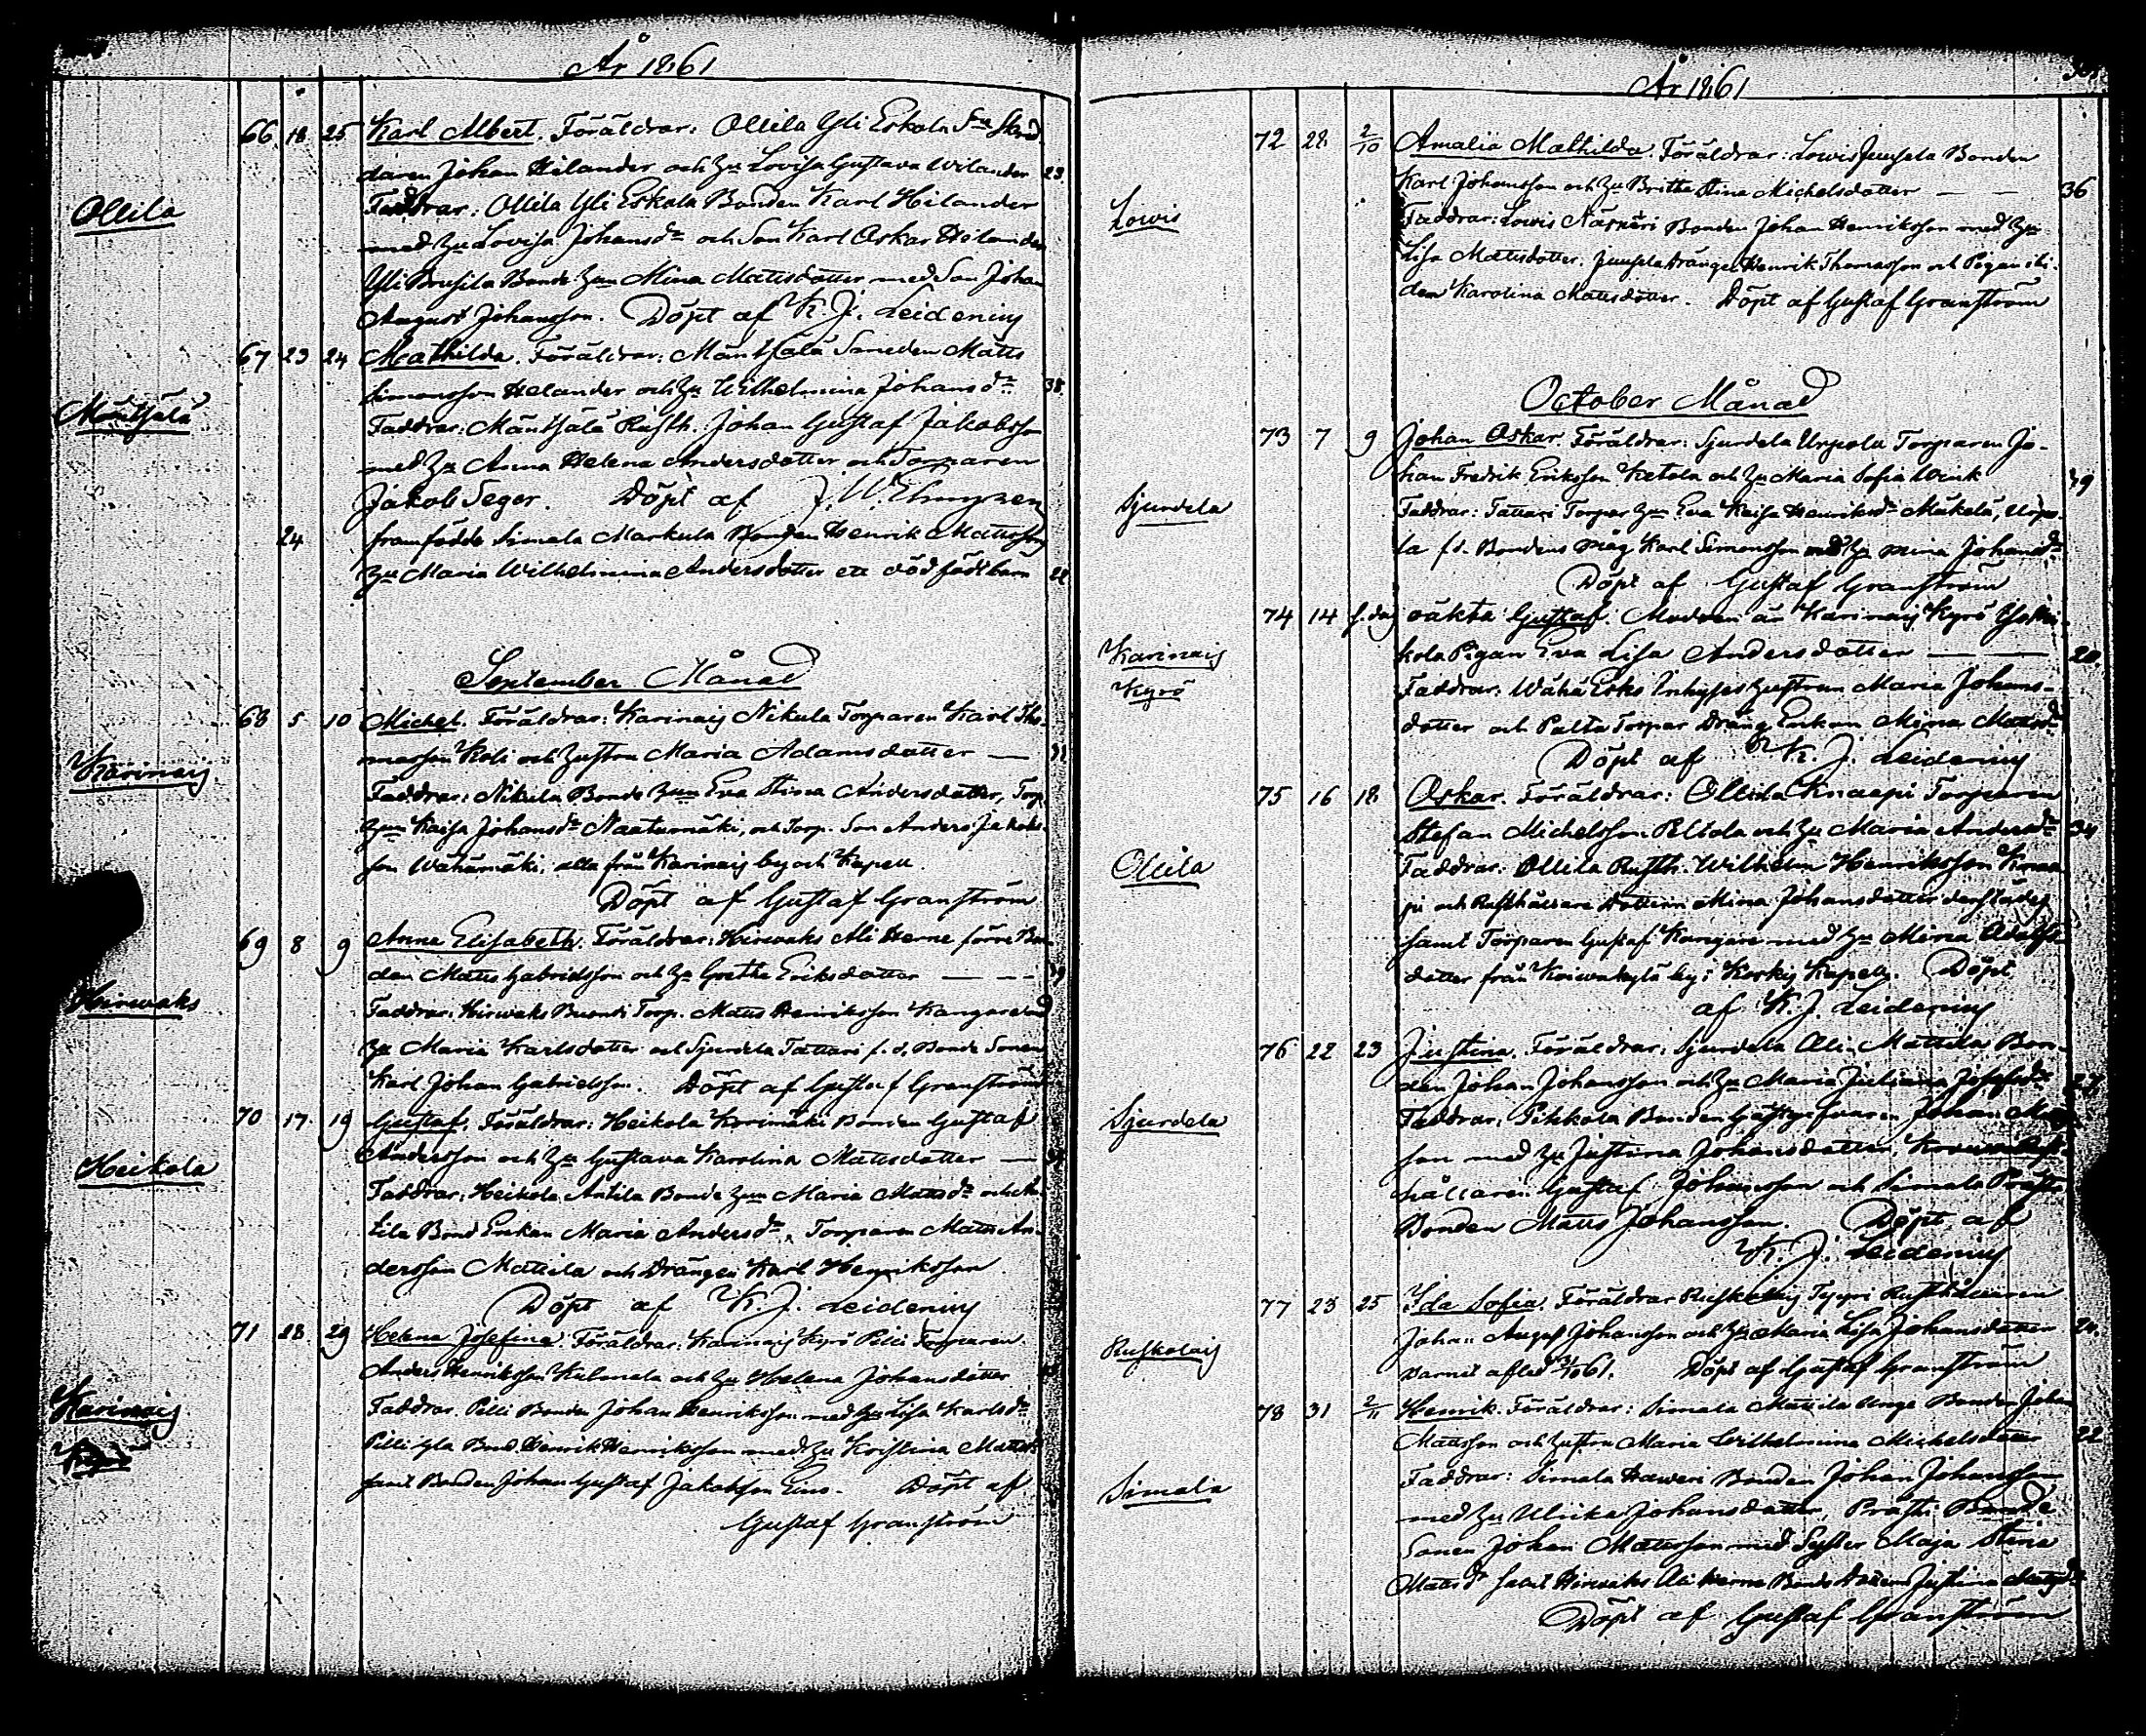 År 1861
66 18 25 Karl Albert. Föräldrar: Ollila Yli Eskola Skräd
daren Johan Hilander och Hu Lovisa Gustava Wilander 23.
Ollila
Faddrar: Ollila Yli Eskola Bonden Karl Hilander
med Hu Lovisa Johansdr och Son Karl Oskar Hilander
Yli Brusila Bonde Hun Mina Mattsdotter med Son Johan
August Johansson. Döpt af K. J. Leidenius
67 23 24 Mathilda. Föräldrar: Mäntsälä Smeden Matts
Simonsson Helander och Hu Wilhelmina Johansdr 38.
Mäntsälä
Faddrar: Mäntsälä Rusth. Johan Gustaf Jakobsson
med Hu Anna Helena Andersdotter och Torparen
Jakob Seger. Döpt af J. W.
24 framfödde Simala Markula Bonden Henrik Mattsson
Hu Maria Wilhelmina Andersdotter ett dödfödt barn 22
September Månad
68 5 10 Michel. Föräldrar: Karinais Nikula Torparen Karl Tho-
masson Koli och Hustru Maria Adamsdotter —
Karinais
Faddrar: Nikula Bonde Hun Eva Stina Andersdotter, Torp.
Hun Kaisa Johansdr Naatumäki, och Torp. Son Anders Jakobs-
son Wähämäki, alla från Karinais by och Kapell.
Döpt af Gustaf Granström
69 8 9 Anna Elisabeth. Föräldrar: Hirwaks Ali Herne förre Bon-
den Matts Gabrielsson och Hu Gretha Eriksdotter — — 39
Hirwaks
Faddrar: Hirwaks Buondi Torp. Matts Henriksson Kangare med
Hu Maria Karlsdotter och Sjurdela Tattari f. d. Bonde Sonen
Karl Johan Gabrielsson. Döpt af Gustaf Granström
70 17 19 Gustaf. Föräldrar: Heikola Korimäki Bonden Gustaf
Andersson och Hu Gustava Karolina Mattsdotter —
Heikola
Faddrar: Heikola Antila Bonde Hun Maria Mattsdr och
tila Bond Enkan Maria Andersdr, Torparen Matts An-
dersson Mattila och Drängen Karl Henriksson.
Döpt af K. J. Leidenius
71 28 29 Helena Josefina. Föräldrar: Karinais Kyrö Pelli Torparen
Anders Henriksson Kulmela och Hu Helena Johansdotter
Karinais
Kyrö
Faddrar. Pelli Bonden Johan Henriksson med Hu Lisa Karlsdr
Pelli Yla Bond. Henrik Henriksson med Hu Kristina Mattsdr
samt Bonden Johan Gustaf Jakobsson Eino. Döpt af
Gustaf Granström
År 1861
72 28 2/10 Amalia Mathilda. Föräldrar: Lowis Juusela Bonden
Karl Johansson och Hu Britha Stina Michelsdotter — — 36
Lowis
Faddrar: Lowis Näsxäri Bonden Johan Henriksson med Hu
Lisa Mattsdotter. Juusela Drängen Henrik Thomasson och Pigan ibi-
dem Karolina Mattsdotter. Döpt af Gustaf Granström
October Månad
73 7 9 Johan Oskar. Föräldrar: Sjurdela Urpola Torparen Jo-
han Fredrik Eriksson Ketola och Hu Maria Sofia Wink 29
Sjurdela
Faddrar: Tattari Torpar Hun Eva Kaisa Henriksdr Mäkelä, Urpo-
la f.d. Bondens måg Karl Simonsson med Hu Mina Johansdr
Döpt af Gustaf Granström
74 14 s. dag oäkta Gustaf. Modren är Karinais Kyrö
kola Pigan Eva Lisa Andersdotter — — 20
Karinais
Kyrö
Faddrar: Wähä Esko Inhyses hustrun Maria Johans-
dotter och Palta Torpar Dräng Enkan Mina Mattsdr
Döpt af K. J. Leidenius
75 16 18 Oskar. Föräldrar: Ollila Knaapi Torparen
Stefan Michelsson Peltola och Hu Maria Andersdr 34
Ollila
Faddrar: Ollila Rusth. Wilhelm Henriksson Knaa
pi och Rusthållare Dottren Mina Johansdotter derstädes
samt Torparen Gustaf Kangare med Hu Mina Adolfs-
dotter från Koiwukylä by i Koskis Kapell. Döpt
af K. J. Leidenius
76 22 23 Justina. Föräldrar: Sjurdela Ali-Mattila Bon-
den Johan Johansson och Hu Maria Juliana Josefsdr 27
Sjurdela
Faddrar: Pekkola Bonden Gästgifvaren Johan
son med Hu Justina Johansdotter,
hållaren Gustaf Johansson och Simala Präste
Bonden Matts Johansson. Döpt af
K. J. Leidenius
77 23 25 Ida Sofia. Föräldrar Ruskolais Rusthållaren
Johan August Johansson och Hu Maria Lisa Johansdotter
Ruskolais
Barnet afled 31/10 61. Döpt af Gustaf Granström
78 31 2/11 Henrik. Föräldrar: Simala Mattila unge Bonden Johan
Mattsson och hustru Maria Wilhelmina Michelsdotter 22
Simala
Faddrar: Simala Haweri Bonden Johan Johansson
med Hu Ulrika Johansdotter, Prästi Bonde
Sonen Johan Mattsson med Syster Maja Stina
Mattsdr samt Hirwaks Ali Herne Bonde Dottren Justina
Döpt af Gustaf Granström